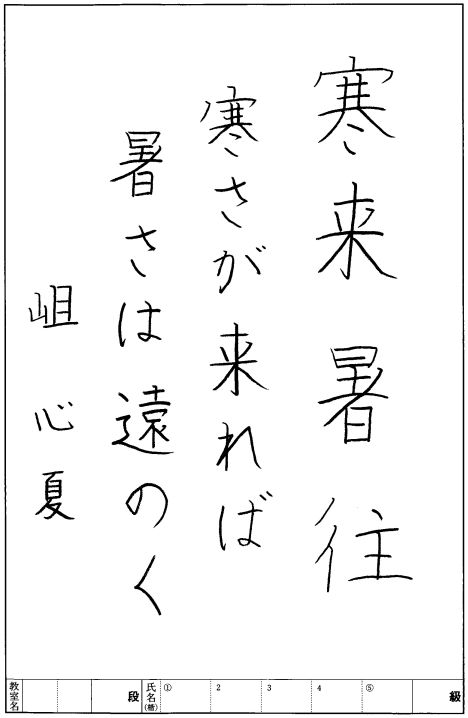 寒来暑往
寒さが来れば
暑さは遠のく
岨心夏
級
⑤
4
3
2
①
氏名(姓)
段
教室名